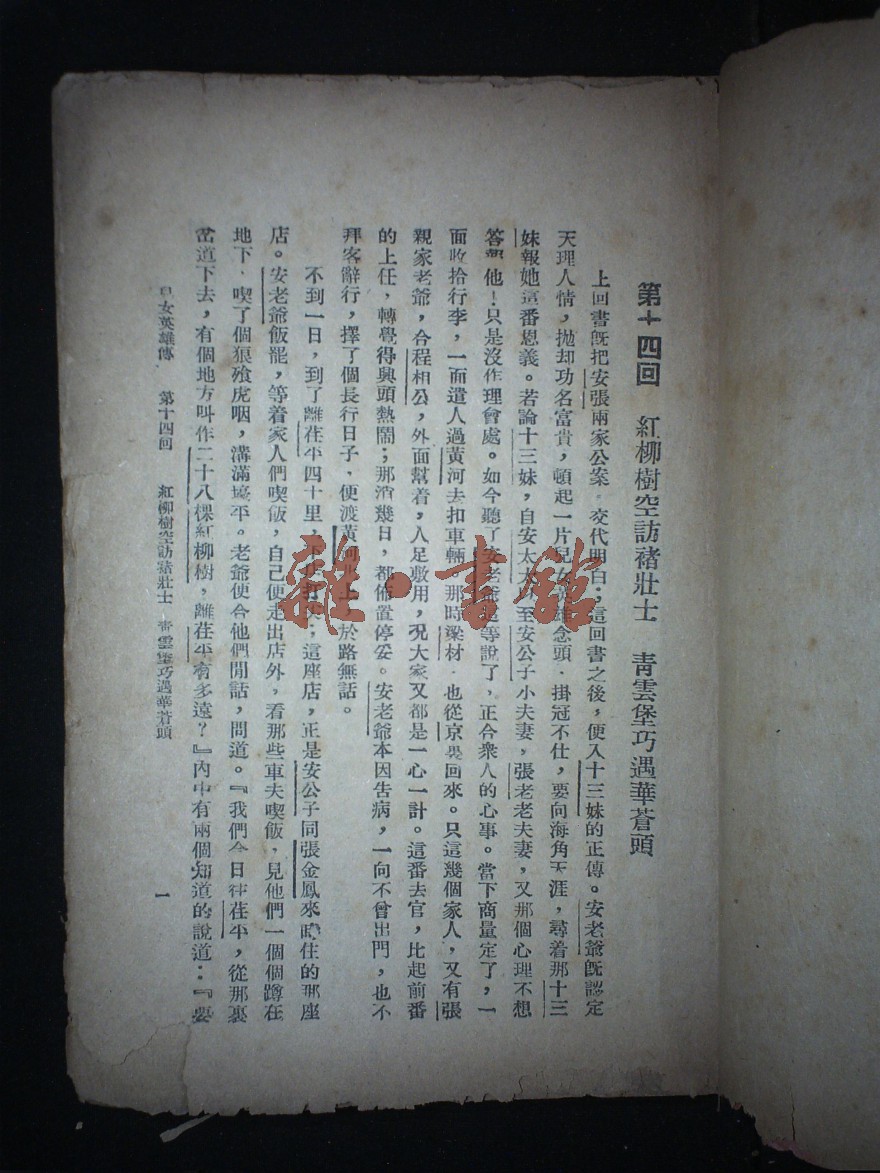 第十四回　紅柳樹空訪褚壯士　青雲堡巧遇華蒼頭
上回書既把安張兩家公案，交代明白；這回書之後，便入十三妹的正傳。安老爺既認定
天理人情，拋却功名富貴，頓起一片兒女英雄念頭，掛冠不仕，要向海角天涯，尋着那十三
妹報她這番恩義。若論十三妹，自安太太至安公子小夫妻，張老老夫妻，又那個心理不想
答報他！只是沒作理會處。如今聽了安老爺這等說了，正合衆人的心事。當下商量定了，一
面收拾行李，一面遣人過黃河去扣車輛。那時梁材，也從京裏回來。只這幾個家人，又有張
親家老爺，合程相公，外面幫着，人足敷用，況大家又都是一心一計。這番去官，比起前番
的上任，轉覺得興頭熱鬧；那消幾日，都佈置停妥。安老爺本因告病，一向不曾出門，也不
拜客辭行，擇了個長行日子，便渡黃河北上，於路無話。
不到一日，到了離茌平四十里，下店打尖；這座店，正是安公子同張金鳳來時住的那座
店。安老爺飯罷，等着家人們喫飯，自己便走出店外，看那些車夫喫飯，見他們一個個蹲在
地下，喫了個狼飱虎咽，溝滿壕平。老爺便合他們閒話，問道。『我們今日往茌平，從那裏
岔道下去，有個地方叫作二十八棵紅柳樹，離茌平有多遠？』內中有兩個知道的說道：『要
兒女英雄傳　第十四回　紅柳樹空訪褚壯士　青雲堡巧遇華蒼頭　一
雜·書館